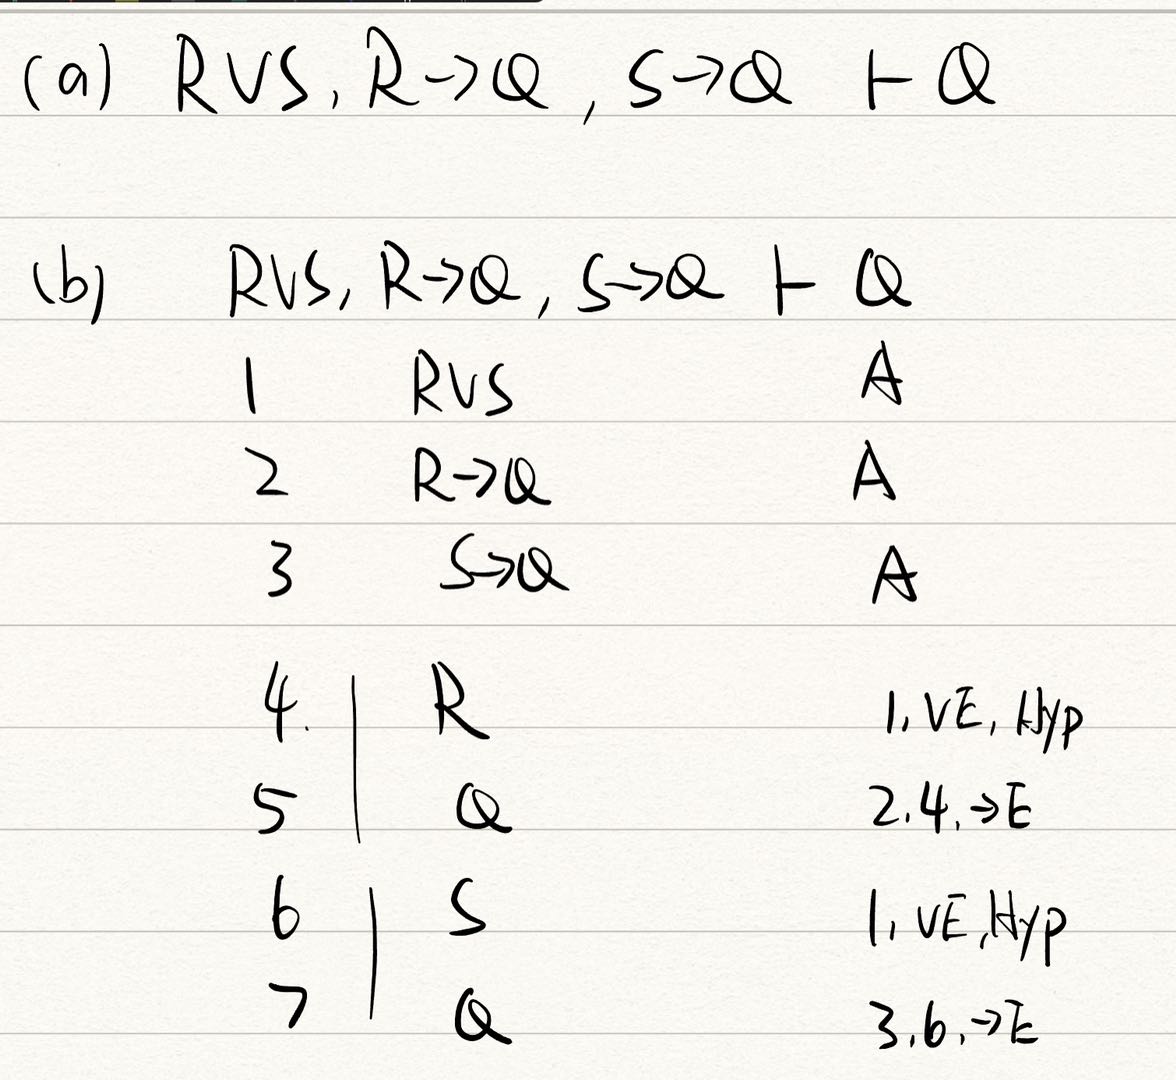 (a) R∨S, R→Q, S→Q ⊢ Q
(b) R∨S, R→Q, S→Q ⊢ Q
1 R∨S A
2 R→Q A
3 S→Q A
4. R 1, ∨E, Hyp
5 Q 2.4.→E
6 S 1, ∨E, Hyp
7 Q 3.6.→E